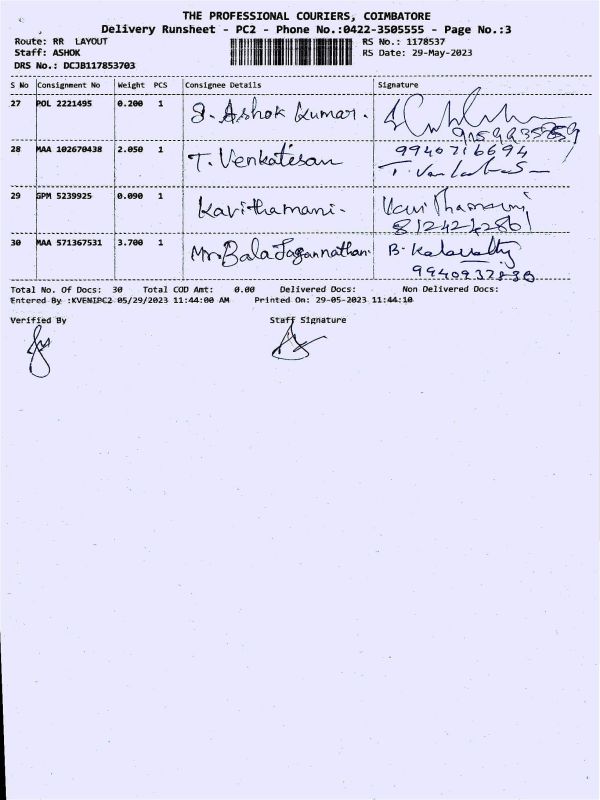 THE PROFESSIONAL COURIERS, COIMBATORE
Delivery Runsheet - PC2 - Phone No.:0422-3505555 - Page No.:3
Route: RR LAYOUT RS No.: 1178537
Staff: ASHOK RS Date: 29-May-2023
DRS No.: DCJB117853703
S No Consignment No Weight PCS Consignee Details Signature
27 POL 2221495 0.200 1 J. Ashok Kumar.
28 MAA 102670438 2.050 1 T. Venkatesan 9940716694
29 GPM 5239925 0.090 1 Kavithamani. Kavithamani
8124242861
30 MAA 571367531 3.700 1 Mr. Bala Jagannathan B. Kalavathy
Total No. Of Docs: 30 Total COD Amt: 0.00 Delivered Docs: Non Delivered Docs:
Entered By :KVENIPC2 05/29/2023 11:44:00 AM Printed On: 29-05-2023 11:44:10
Verified By Staff Signature